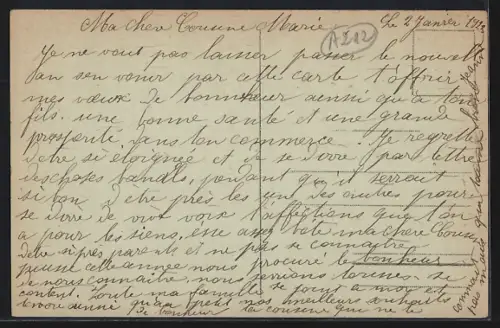 Ma chere Cousine Marie Le 2 Janvier 1926
A212
Je ne veut pas laisser passer le nouvelle
an sen venir par cette carte t'offrir
mes vœux de bonheur ainsi qu'a ton
fils. une bonne santé et une grande
prosperité dans ton commerce. Je regrette
detre si eloignée et de se dire par lettre
des choses banals, pendant qu'il serrait
si bon d'être près les une des autres pour
se dire de vive voix l'affections que l'on
a pour les siens, ma chere Cousine
detre si près parents et ne pas se connaitre
puisse cette année nous procuré le bonheur
de nous connaitre, nous serions tous
content. Toute ma famille se joint a moi et
nos meilleurs souhaits
De bonheur La cousine qui ne te
connait
pas mais qui t'aime